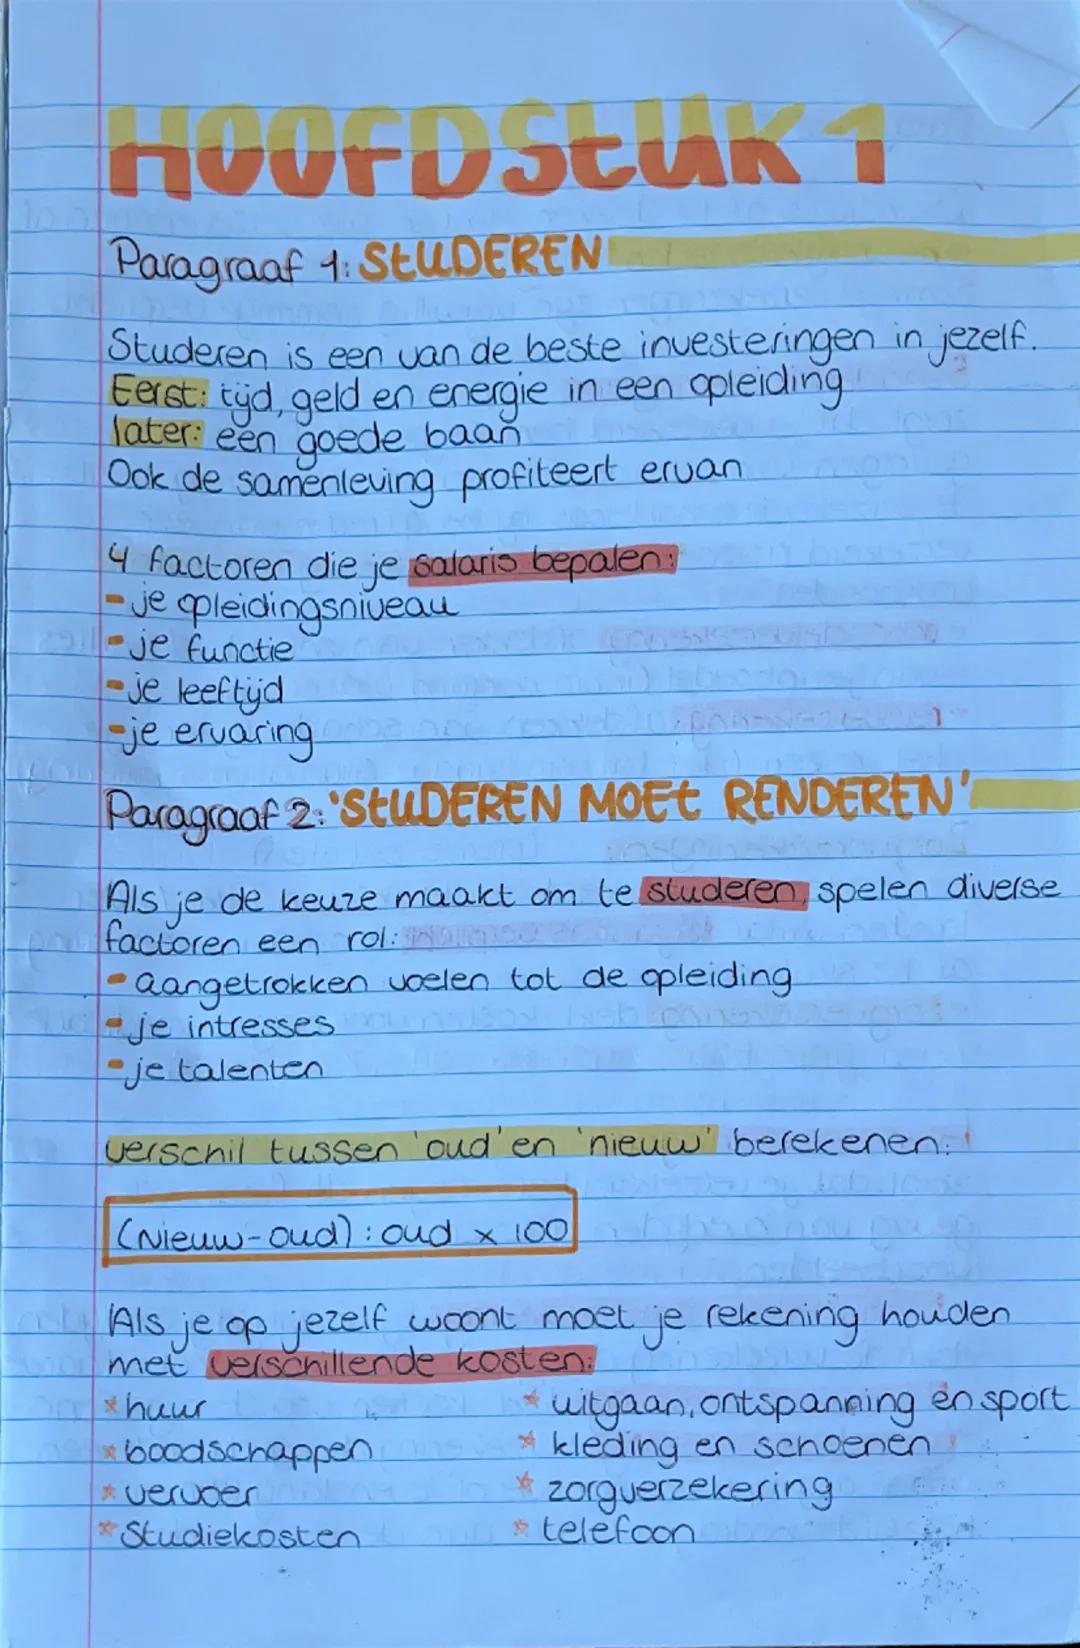 HOOFDStUK 1
Paragraaf 1: StUDEREN
Studeren is een van de beste investeringen in jezelf.
Eerst: tijd, geld en energie in een opleiding
later: een goede baan
Ook de samenleving profiteert ervan
4 factoren die je salaris bepalen:
- je opleidingsniveau
- je functie
- je leeftijd
- je ervaring
Paragraaf 2: 'StUDEREN MOEt RENDEREN'
Als je de keuze maakt om te studeren, spelen diverse
factoren een rol:
- aangetrokken voelen tot de opleiding
- je intresses
- je talenten
verschil tussen 'oud' en 'nieuw' berekenen:
(Nieuw-oud) : oud x 100
Als je op jezelf woont moet je rekening houden
met verschillende kosten:
* huur * uitgaan, ontspanning en sport
* boodschappen * kleding en schoenen
* vervoer * zorgverzekering
* Studiekosten * telefoon